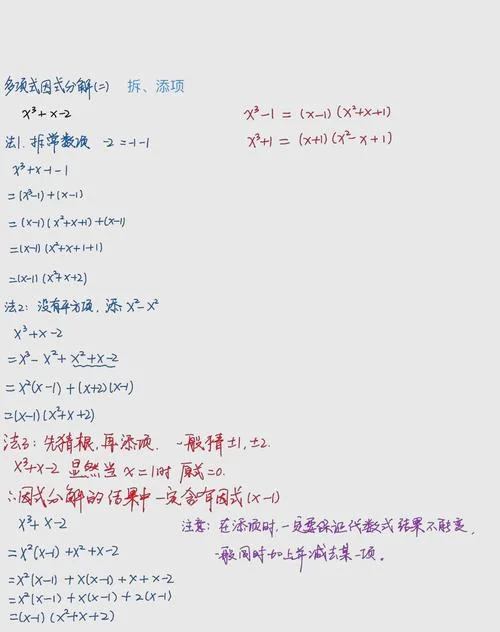 多项式因式分解(二) 拆、添项
x³+x-2
x³-1 = (x-1)(x²+x+1)
x³+1 = (x+1)(x²-x+1)
法1. 拆常数项 -2=-1-1
x³+x-1-1
=(x³-1)+(x-1)
=(x-1)(x²+x+1)+(x-1)
=(x-1)(x²+x+1+1)
=(x-1)(x²+x+2)
法2: 没有平方项, 添x²-x²
x³+x-2
=x³-x²+x²+x-2
=x²(x-1)+(x+2)(x-1)
=(x-1)(x²+x+2)
法3: 先猜根, 再添项. 一般猜±1,±2.
x³+x-2 显然当x=1时 原式=0.
∴因式分解的结果中一定含有因式(x-1)
x³+x-2
=x²(x-1)+x²+x-2
=x²(x-1)+x(x-1)+x+x-2
=x²(x-1)+x(x-1)+2(x-1)
=(x-1)(x²+x+2)
注意: 在添项时, 一定要保证代数式结果不能变,
一般同时加上并减去某一项。